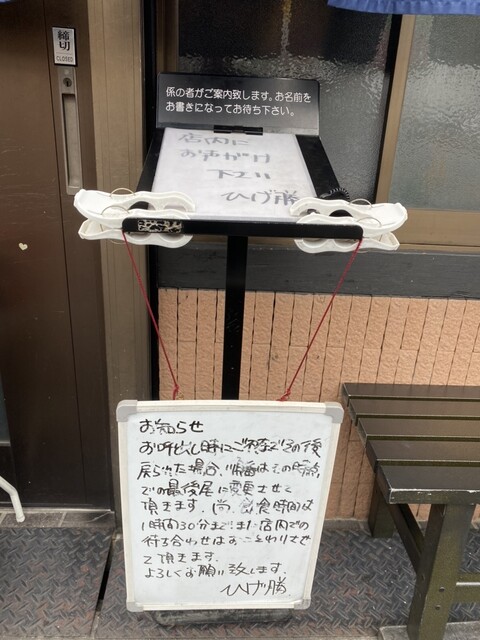 締切
CLOSED
係の者がご案内致します。お名前を
お書きになってお待ち下さい。
店内に
お声がけ
下さい
ひげ勝
お知らせ
お呼出し時にご不在でその後
戻られた場合、順番はその時点
での最後尾に変更させて
頂きます。尚、飲食時間は
1時間30分まで。また店内での
待ち合わせはおことわりさせ
て頂きます。
よろしくお願い致します。
ひげ勝